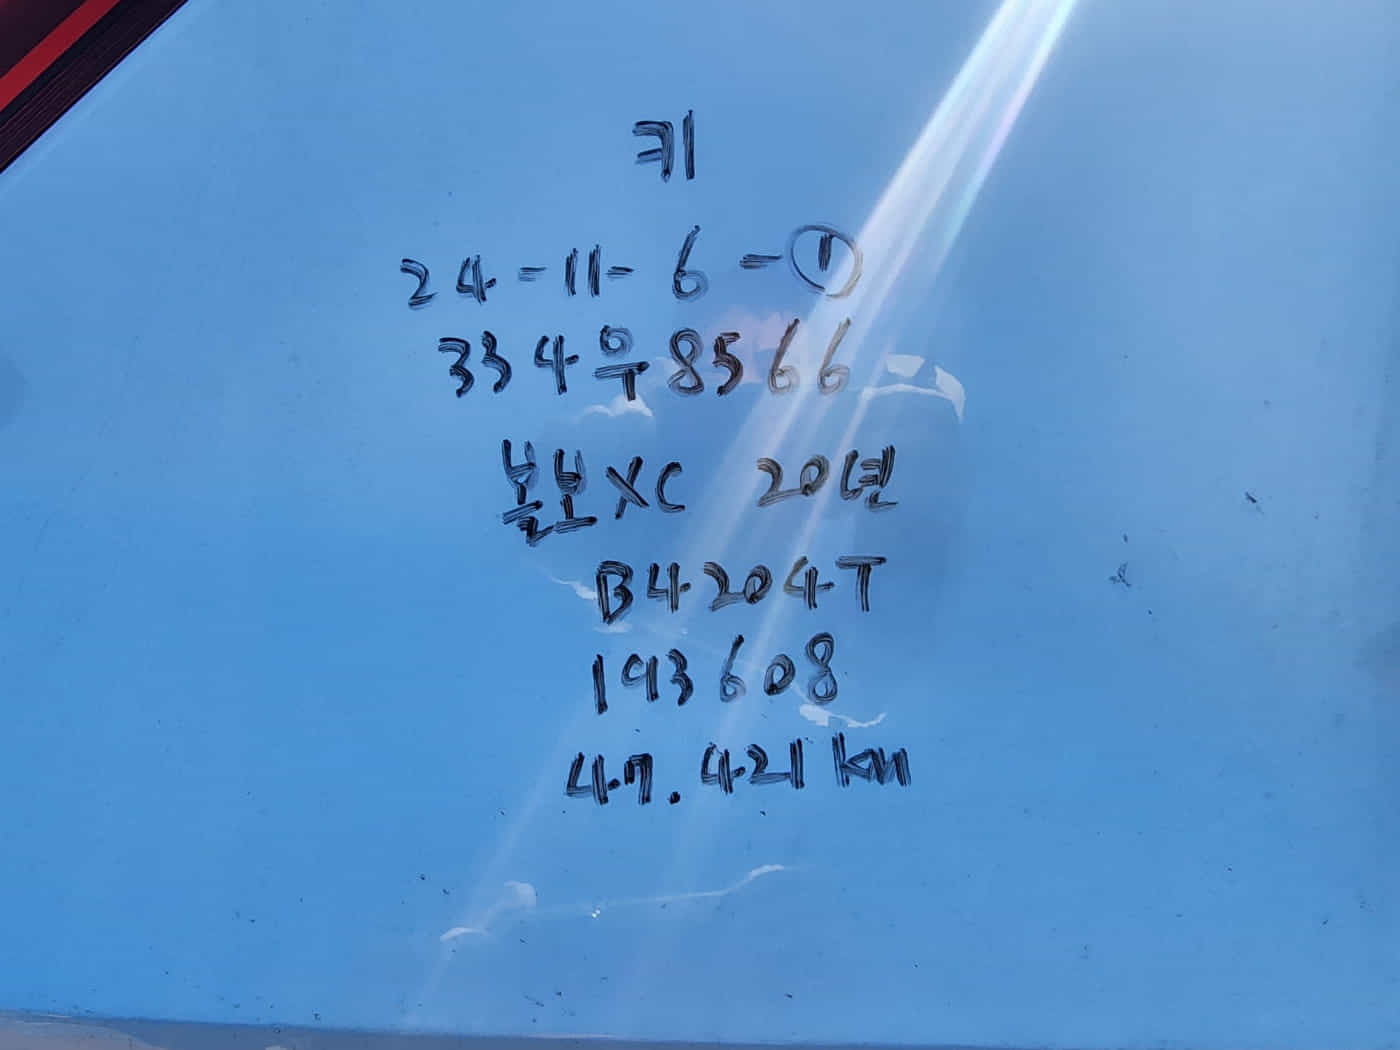 키
24-11-6-①
334우8566
볼보XC 20년
B4204T
193608
47.421km